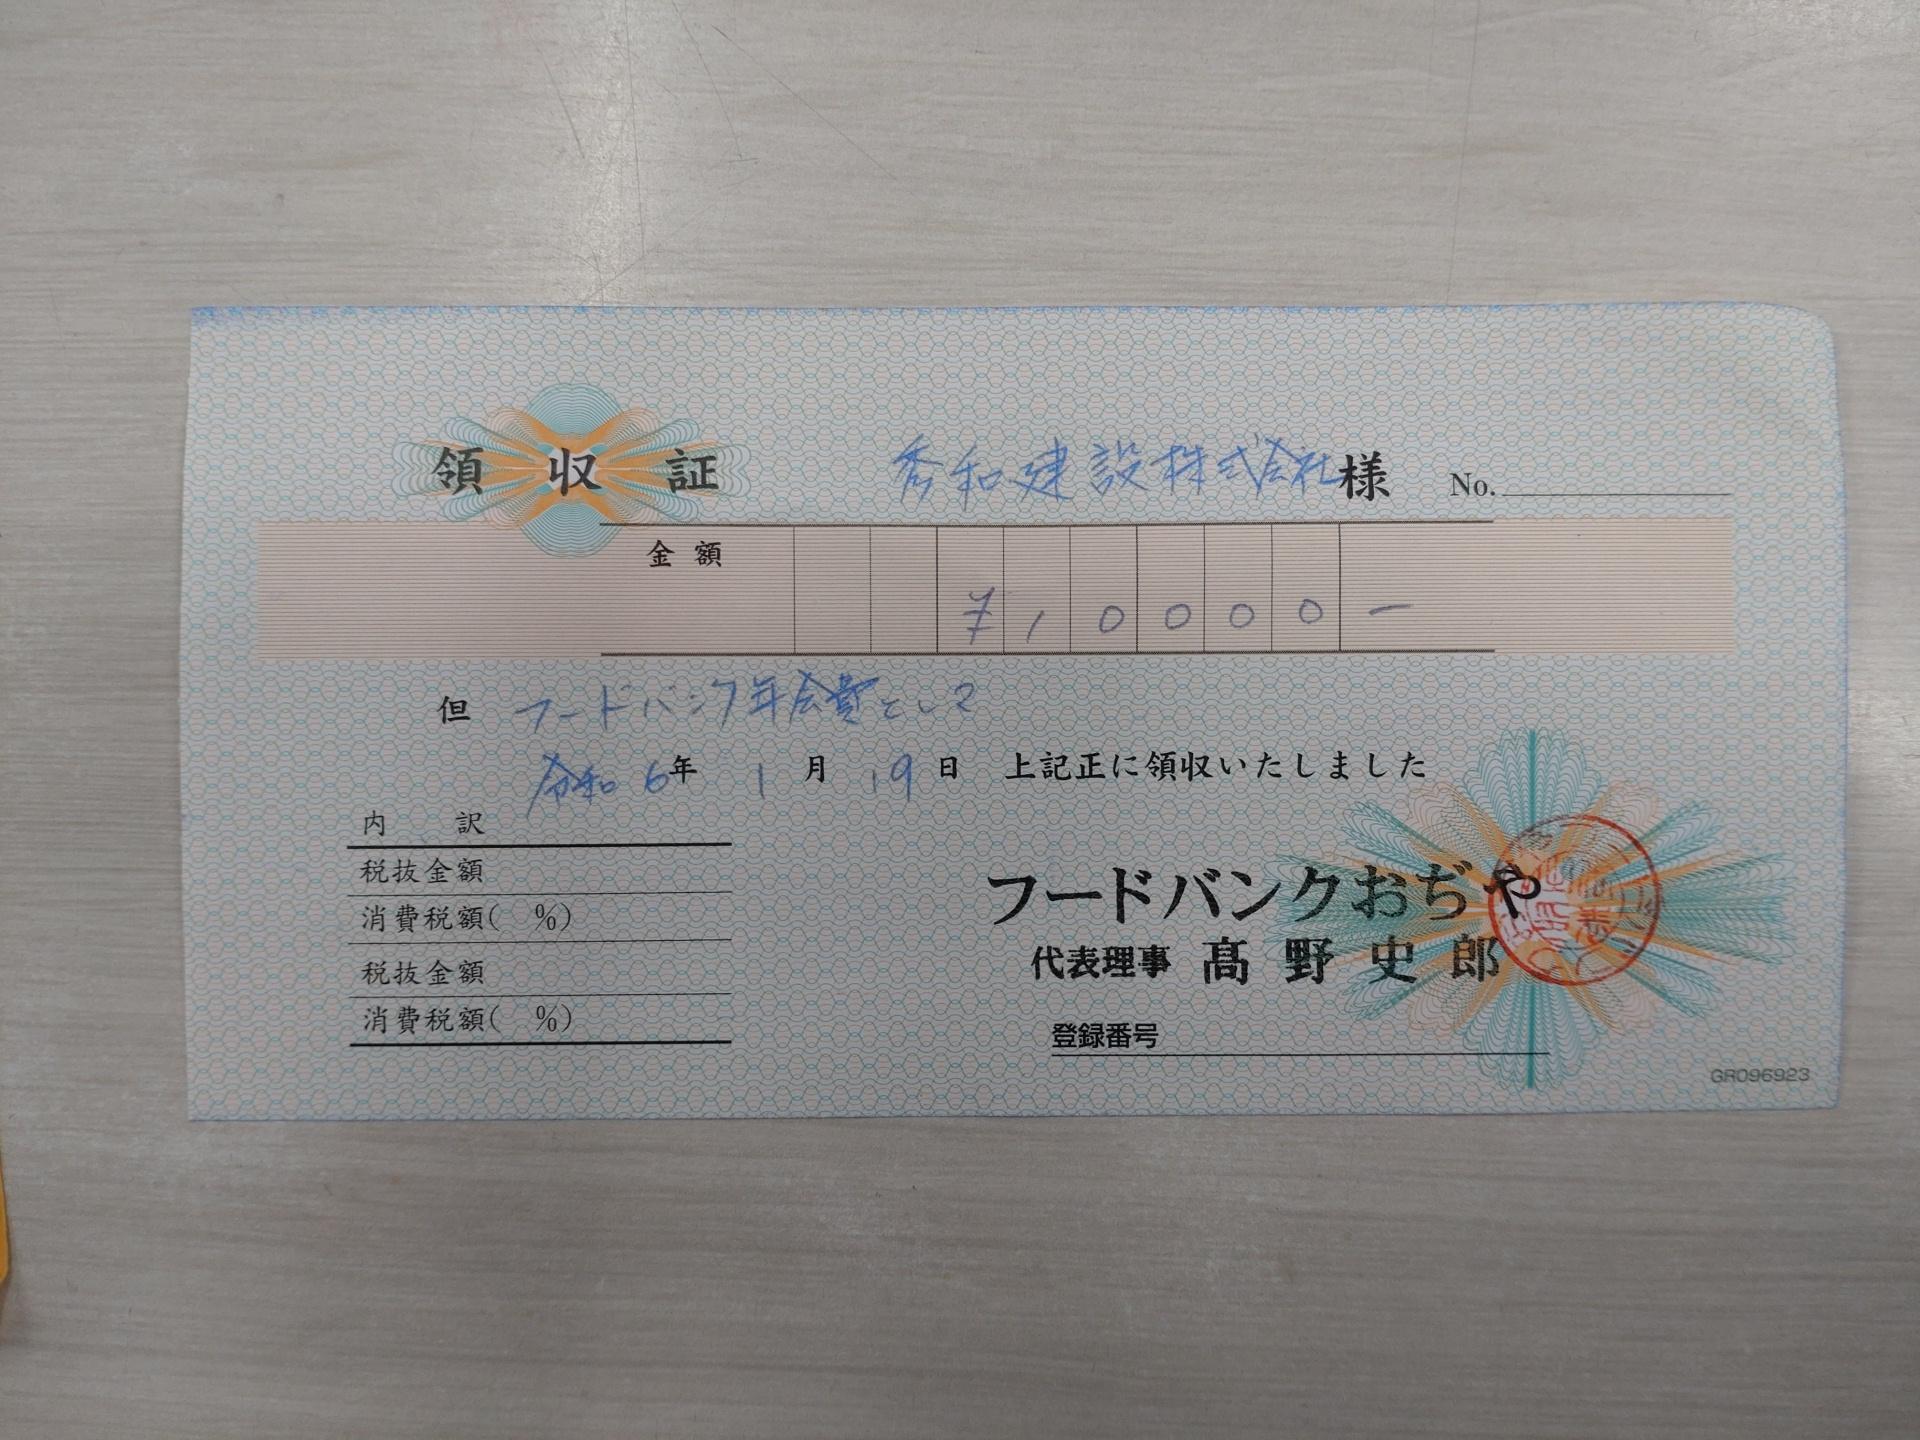 領収証 秀和建設株式会社様 No.
金額 ¥10000-
但 フードバンク年会費として
令和6年1月19日 上記正に領収いたしました
内訳
税抜金額
消費税額( %)
税抜金額
消費税額( %)
フードバンクおぢや
代表理事 髙野史郎
登録番号
GR096923